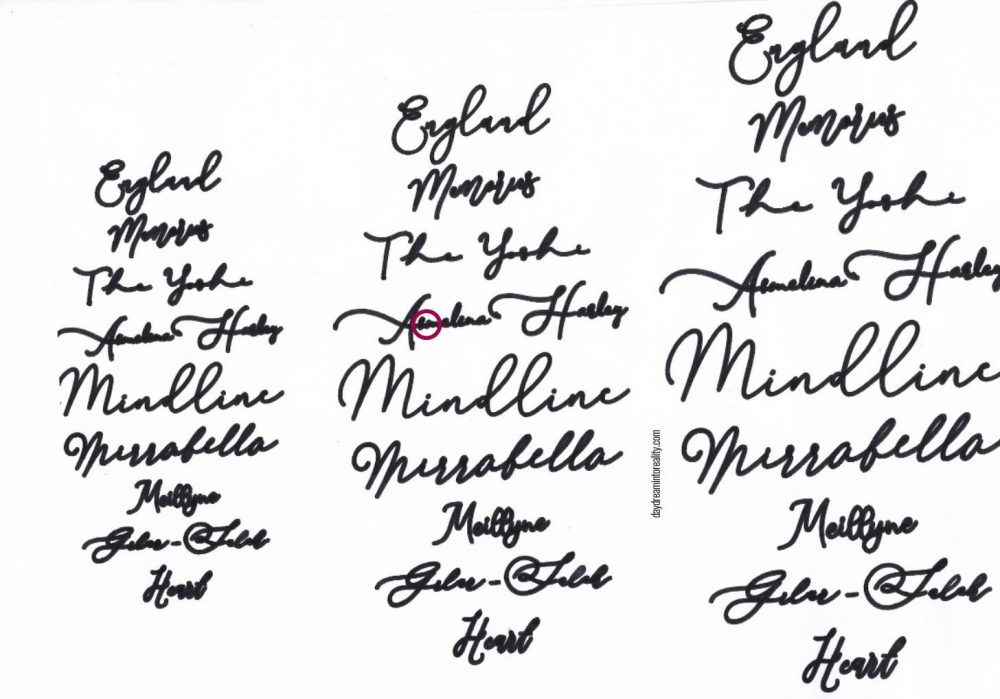 England
Memories
The Yoshi
Asmelina Harley
Mindline
Mirrabella
Meillyne
Heart
England
Memories
The Yoshi
Asmelina Harley
Mindline
Mirrabella
Meillyne
Heart
daydreamintoreality.com
England
Memories
The Yoshi
Asmelina Harley
Mindline
Mirrabella
Meillyne
Heart